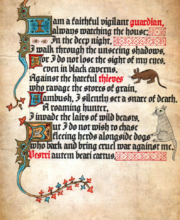 I am a faithful vigilant guardian,
always watching the house;
In the deep night,
I walk through the unseeing shadows,
For I do not lose the sight of my eyes,
even in black caverns.
Against the hurtful thieves
who ravage the stores of grain,
Lambush, I silently set a snare of death.
A roaming hunter,
I invade the lairs of wild beasts,
But I do not wish to chase
fleeing herds alongside dogs
who bark and bring cruel war against me.
autem beari cattus